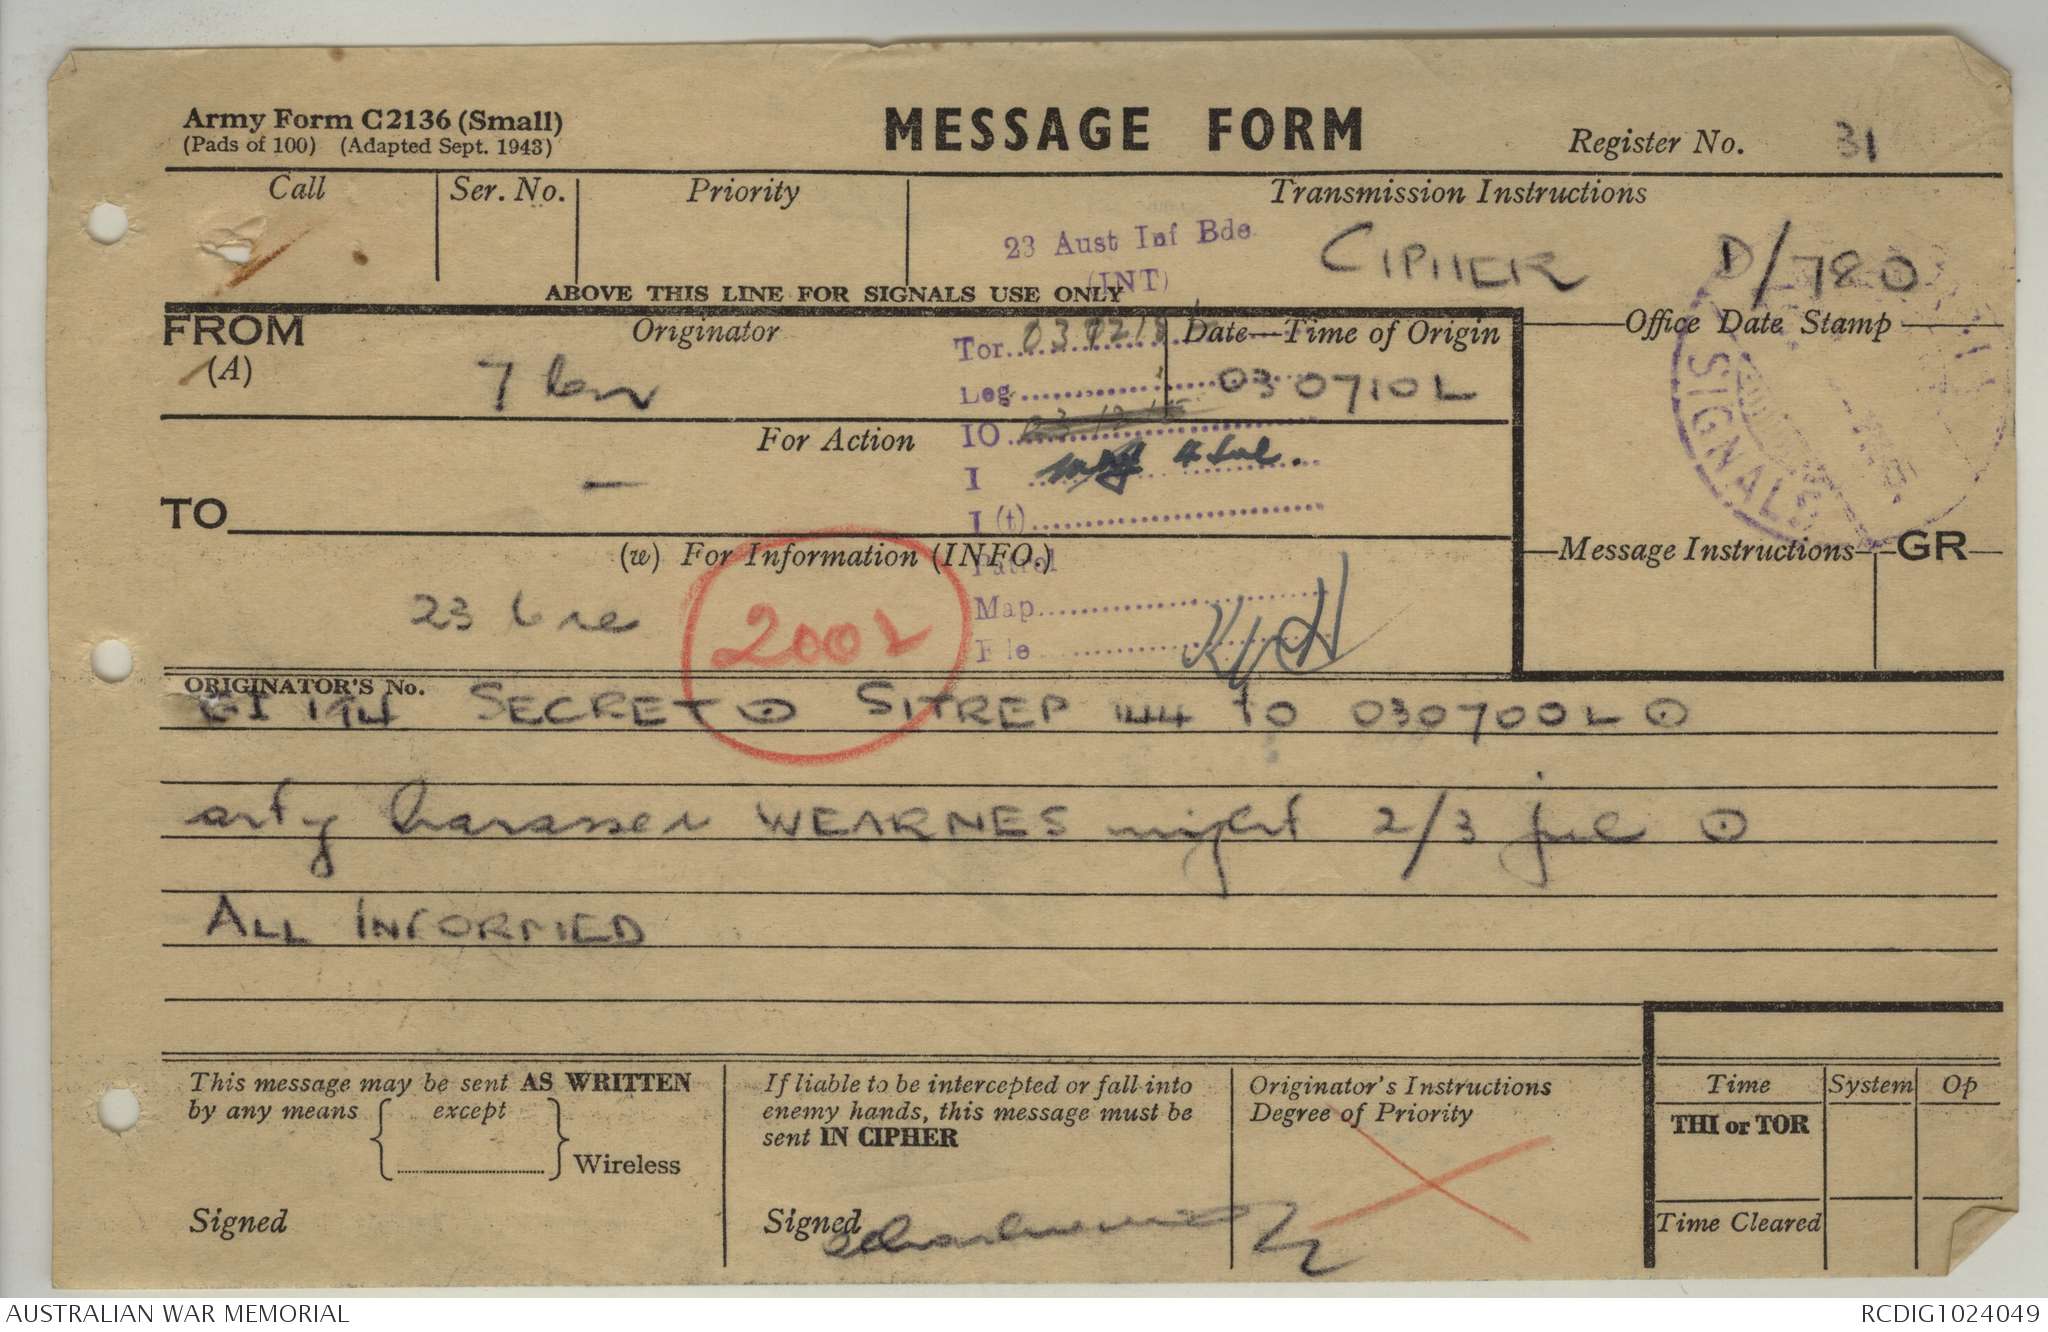 Army Form C2136 (Small)
(Pads of 100) (Adapted Sept. 1943)
MESSAGE FORM
Register No. 31
Call
Ser. No.
Priority
Transmission Instructions
23 Aust Inf Bde
(INT)
CIPHER D/780
ABOVE THIS LINE FOR SIGNALS USE ONLY
FROM
(A)
Originator
7 bn
Date—Time of Origin
030710L
Office Date Stamp
SIGNALS
Tor
Log
IO
I
4 Jul.
I (t)
Patrol
Map
File
For Action
—
TO
(w) For Information (INFO.)
23 bde
200L
Message Instructions
GR
ORIGINATOR'S No.
GI 194 SECRET ⊙ SITREP 144 TO 030700L ⊙
arty harasser WEARNES night 2/3 jul ⊙
ALL INFORMED
This message may be sent AS WRITTEN
by any means { except } Wireless
Signed
If liable to be intercepted or fall into
enemy hands, this message must be
sent IN CIPHER
Signed
Originator's Instructions
Degree of Priority
Time
System
Op
THI or TOR
Time Cleared
AUSTRALIAN WAR MEMORIAL
RCDIG1024049